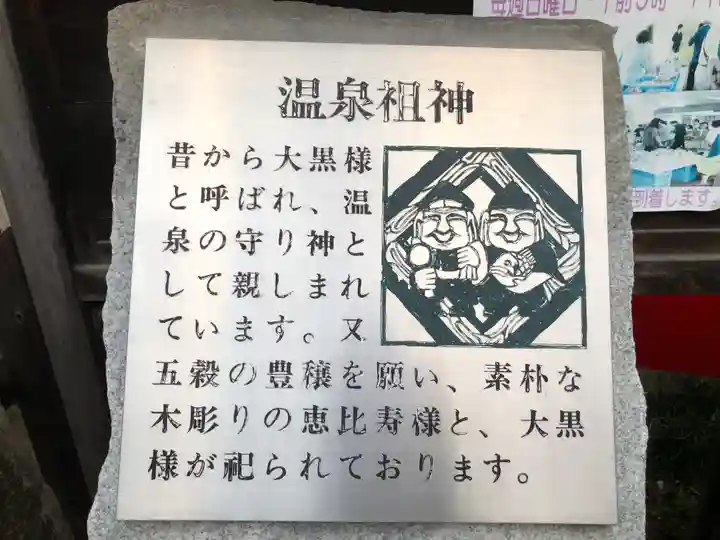 毎週日曜日
温泉祖神
昔から大黒様
と呼ばれ、温
泉の守り神と
して親しまれ
ています。又
五穀の豊穣を願い、素朴な
木彫りの恵比寿様と、大黒
様が祀られております。
到着します。